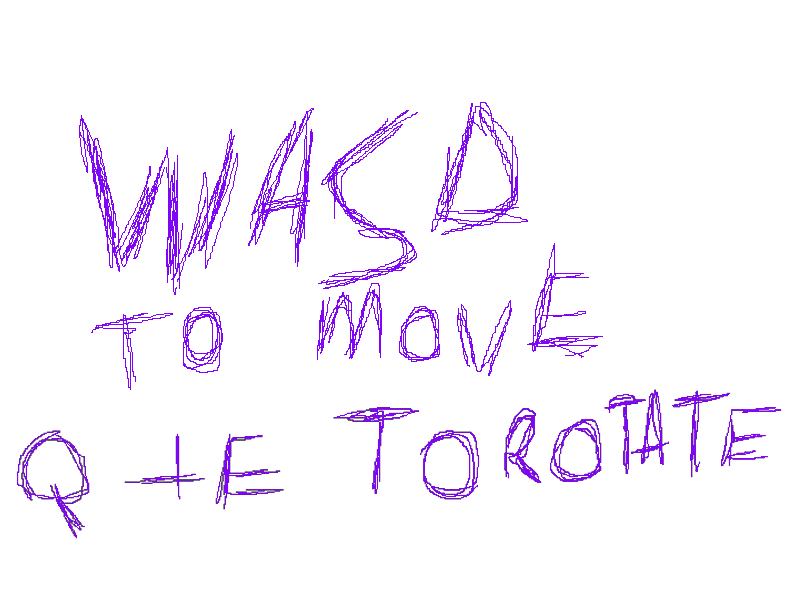 WASD
TO MOVE
Q+E TO ROTATE